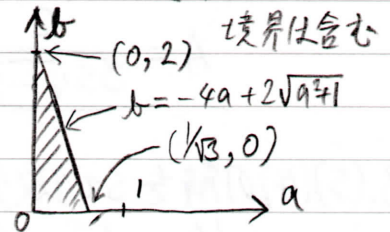 b
境界は含む
(0, 2)
b = -4a + 2√(a²+1)
(1/√3, 0)
1
a
0